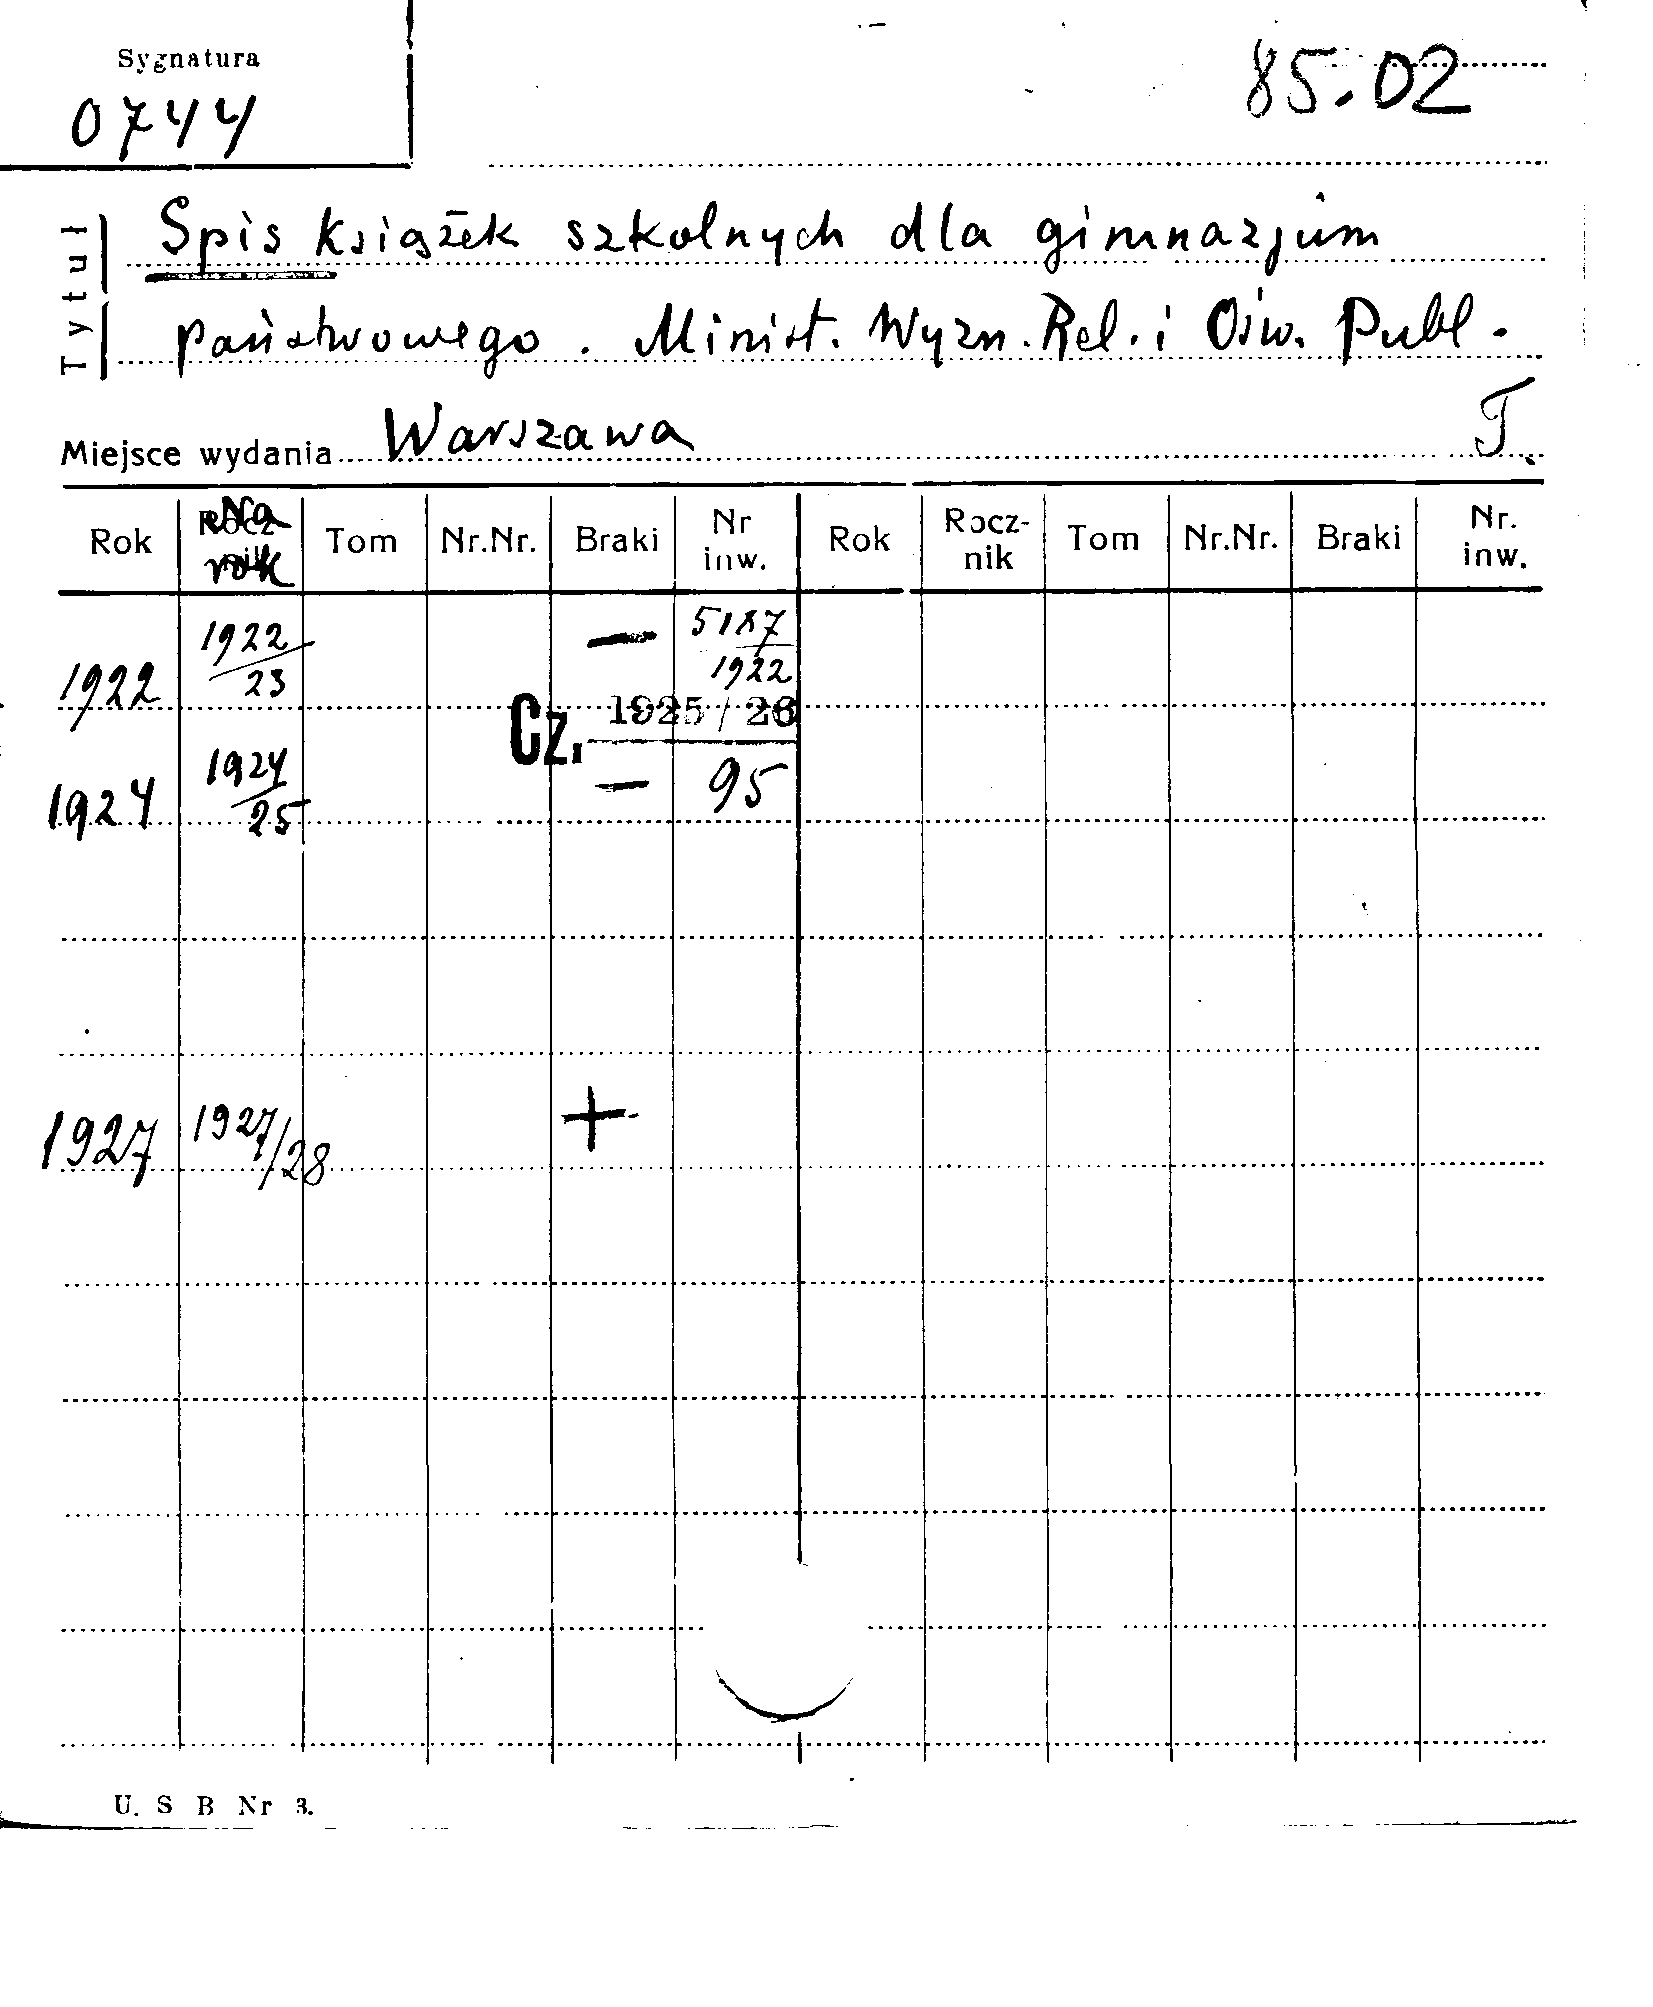 Sygnatura
0744
85.02
Tytuł
Spis książek szkolnych dla gimnazjum
państwowego. Minist. Wyzn. Rel. i Ośw. Publ.
Miejsce wydania Warszawa T.
Rok Na rok Tom Nr.Nr. Braki Nr inw. Rok Rocz-nik Tom Nr.Nr. Braki Nr. inw.
1922 1922/23 — 5187/1922
Cz. 1925/26
1924 1924/25 — 95
1927 1927/28 +
U. S B Nr 3.